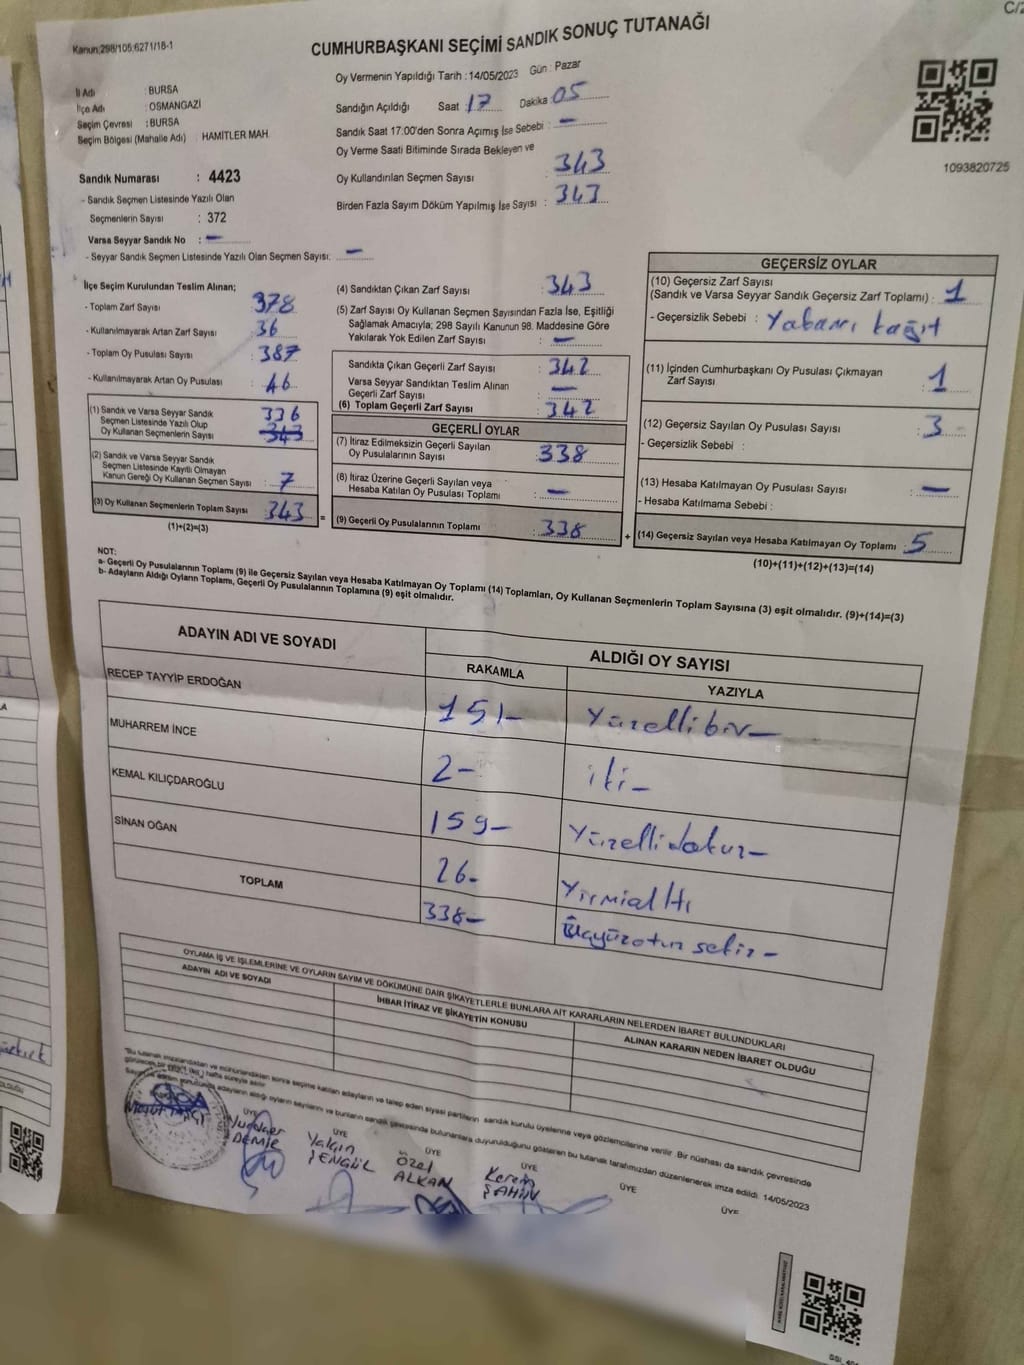 C/2
Kanun:298/105;6271/18-1
CUMHURBAŞKANI SEÇİMİ SANDIK SONUÇ TUTANAĞI
İl Adı : BURSA
İlçe Adı : OSMANGAZİ
Seçim Çevresi : BURSA
Seçim Bölgesi (Mahalle Adı) : HAMİTLER MAH.
Oy Vermenin Yapıldığı Tarih : 14/05/2023 Gün : Pazar
Sandığın Açıldığı Saat : 17 Dakika : 05
Sandık Saat 17:00'den Sonra Açımış İse Sebebi : —
Oy Verme Saati Bitiminde Sırada Bekleyen ve
Oy Kullandırılan Seçmen Sayısı : 343
Birden Fazla Sayım Döküm Yapılmış İse Sayısı : 343
1093820725
Sandık Numarası : 4423
- Sandık Seçmen Listesinde Yazılı Olan
Seçmenlerin Sayısı : 372
Varsa Seyyar Sandık No : —
- Seyyar Sandık Seçmen Listesinde Yazılı Olan Seçmen Sayısı: —
İlçe Seçim Kurulundan Teslim Alınan;
- Toplam Zarf Sayısı : 378
- Kullanılmayarak Artan Zarf Sayısı : 36
- Toplam Oy Pusulası Sayısı : 387
- Kullanılmayarak Artan Oy Pusulası : 46
(1) Sandık ve Varsa Seyyar Sandık
Seçmen Listesinde Yazılı Olup
Oy Kullanan Seçmenlerin Sayısı : 336 343
(2) Sandık ve Varsa Seyyar Sandık
Seçmen Listesinde Kayıtlı Olmayan
Kanun Gereği Oy Kullanan Seçmen Sayısı : 7
(3) Oy Kullanan Seçmenlerin Toplam Sayısı : 343
(1)+(2)=(3)
=
(4) Sandıktan Çıkan Zarf Sayısı : 343
(5) Zarf Sayısı Oy Kullanan Seçmen Sayısından Fazla İse, Eşitliği
Sağlamak Amacıyla; 298 Sayılı Kanunun 98. Maddesine Göre
Yakılarak Yok Edilen Zarf Sayısı : —
Sandıkta Çıkan Geçerli Zarf Sayısı : 342
Varsa Seyyar Sandıktan Teslim Alınan
Geçerli Zarf Sayısı : —
(6) Toplam Geçerli Zarf Sayısı : 342
GEÇERLİ OYLAR
(7) İtiraz Edilmeksizin Geçerli Sayılan
Oy Pusulalarının Sayısı : 338
(8) İtiraz Üzerine Geçerli Sayılan veya
Hesaba Katılan Oy Pusulası Toplamı : —
(9) Geçerli Oy Pusulalarının Toplamı : 338
+
GEÇERSİZ OYLAR
(10) Geçersiz Zarf Sayısı
(Sandık ve Varsa Seyyar Sandık Geçersiz Zarf Toplamı) : 1
- Geçersizlik Sebebi : Yabancı kağıt
(11) İçinden Cumhurbaşkanı Oy Pusulası Çıkmayan
Zarf Sayısı : 1
(12) Geçersiz Sayılan Oy Pusulası Sayısı : 3
- Geçersizlik Sebebi :
(13) Hesaba Katılmayan Oy Pusulası Sayısı : —
- Hesaba Katılmama Sebebi :
(14) Geçersiz Sayılan veya Hesaba Katılmayan Oy Toplamı : 5
(10)+(11)+(12)+(13)=(14)
NOT:
a- Geçerli Oy Pusulalarının Toplamı (9) ile Geçersiz Sayılan veya Hesaba Katılmayan Oy Toplamı (14) Toplamları, Oy Kullanan Seçmenlerin Toplam Sayısına (3) eşit olmalıdır. (9)+(14)=(3)
b- Adayların Aldığı Oyların Toplamı, Geçerli Oy Pusulalarının Toplamına (9) eşit olmalıdır.
ADAYIN ADI VE SOYADI ALDIĞI OY SAYISI
RAKAMLA YAZIYLA
RECEP TAYYİP ERDOĞAN 151- Yüzellibir-
MUHARREM İNCE 2- iki-
KEMAL KILIÇDAROĞLU 159- Yüzellidokuz-
SİNAN OĞAN 26- Yirmialtı
TOPLAM 338- Üçyüzotuz sekiz-
OYLAMA İŞ VE İŞLEMLERİNE VE OYLARIN SAYIM VE DÖKÜMÜNE DAİR ŞİKAYETLERLE BUNLARA AİT KARARLARIN NELERDEN İBARET BULUNDUKLARI
ADAYIN ADI VE SOYADI İHBAR İTİRAZ VE ŞİKAYETİN KONUSU ALINAN KARARIN NEDEN İBARET OLDUĞU
ÜYE ÜYE ÜYE ÜYE ÜYE ÜYE
Yalçın ŞENGÜL
Özel ALKAN
Kerem ŞAHİN